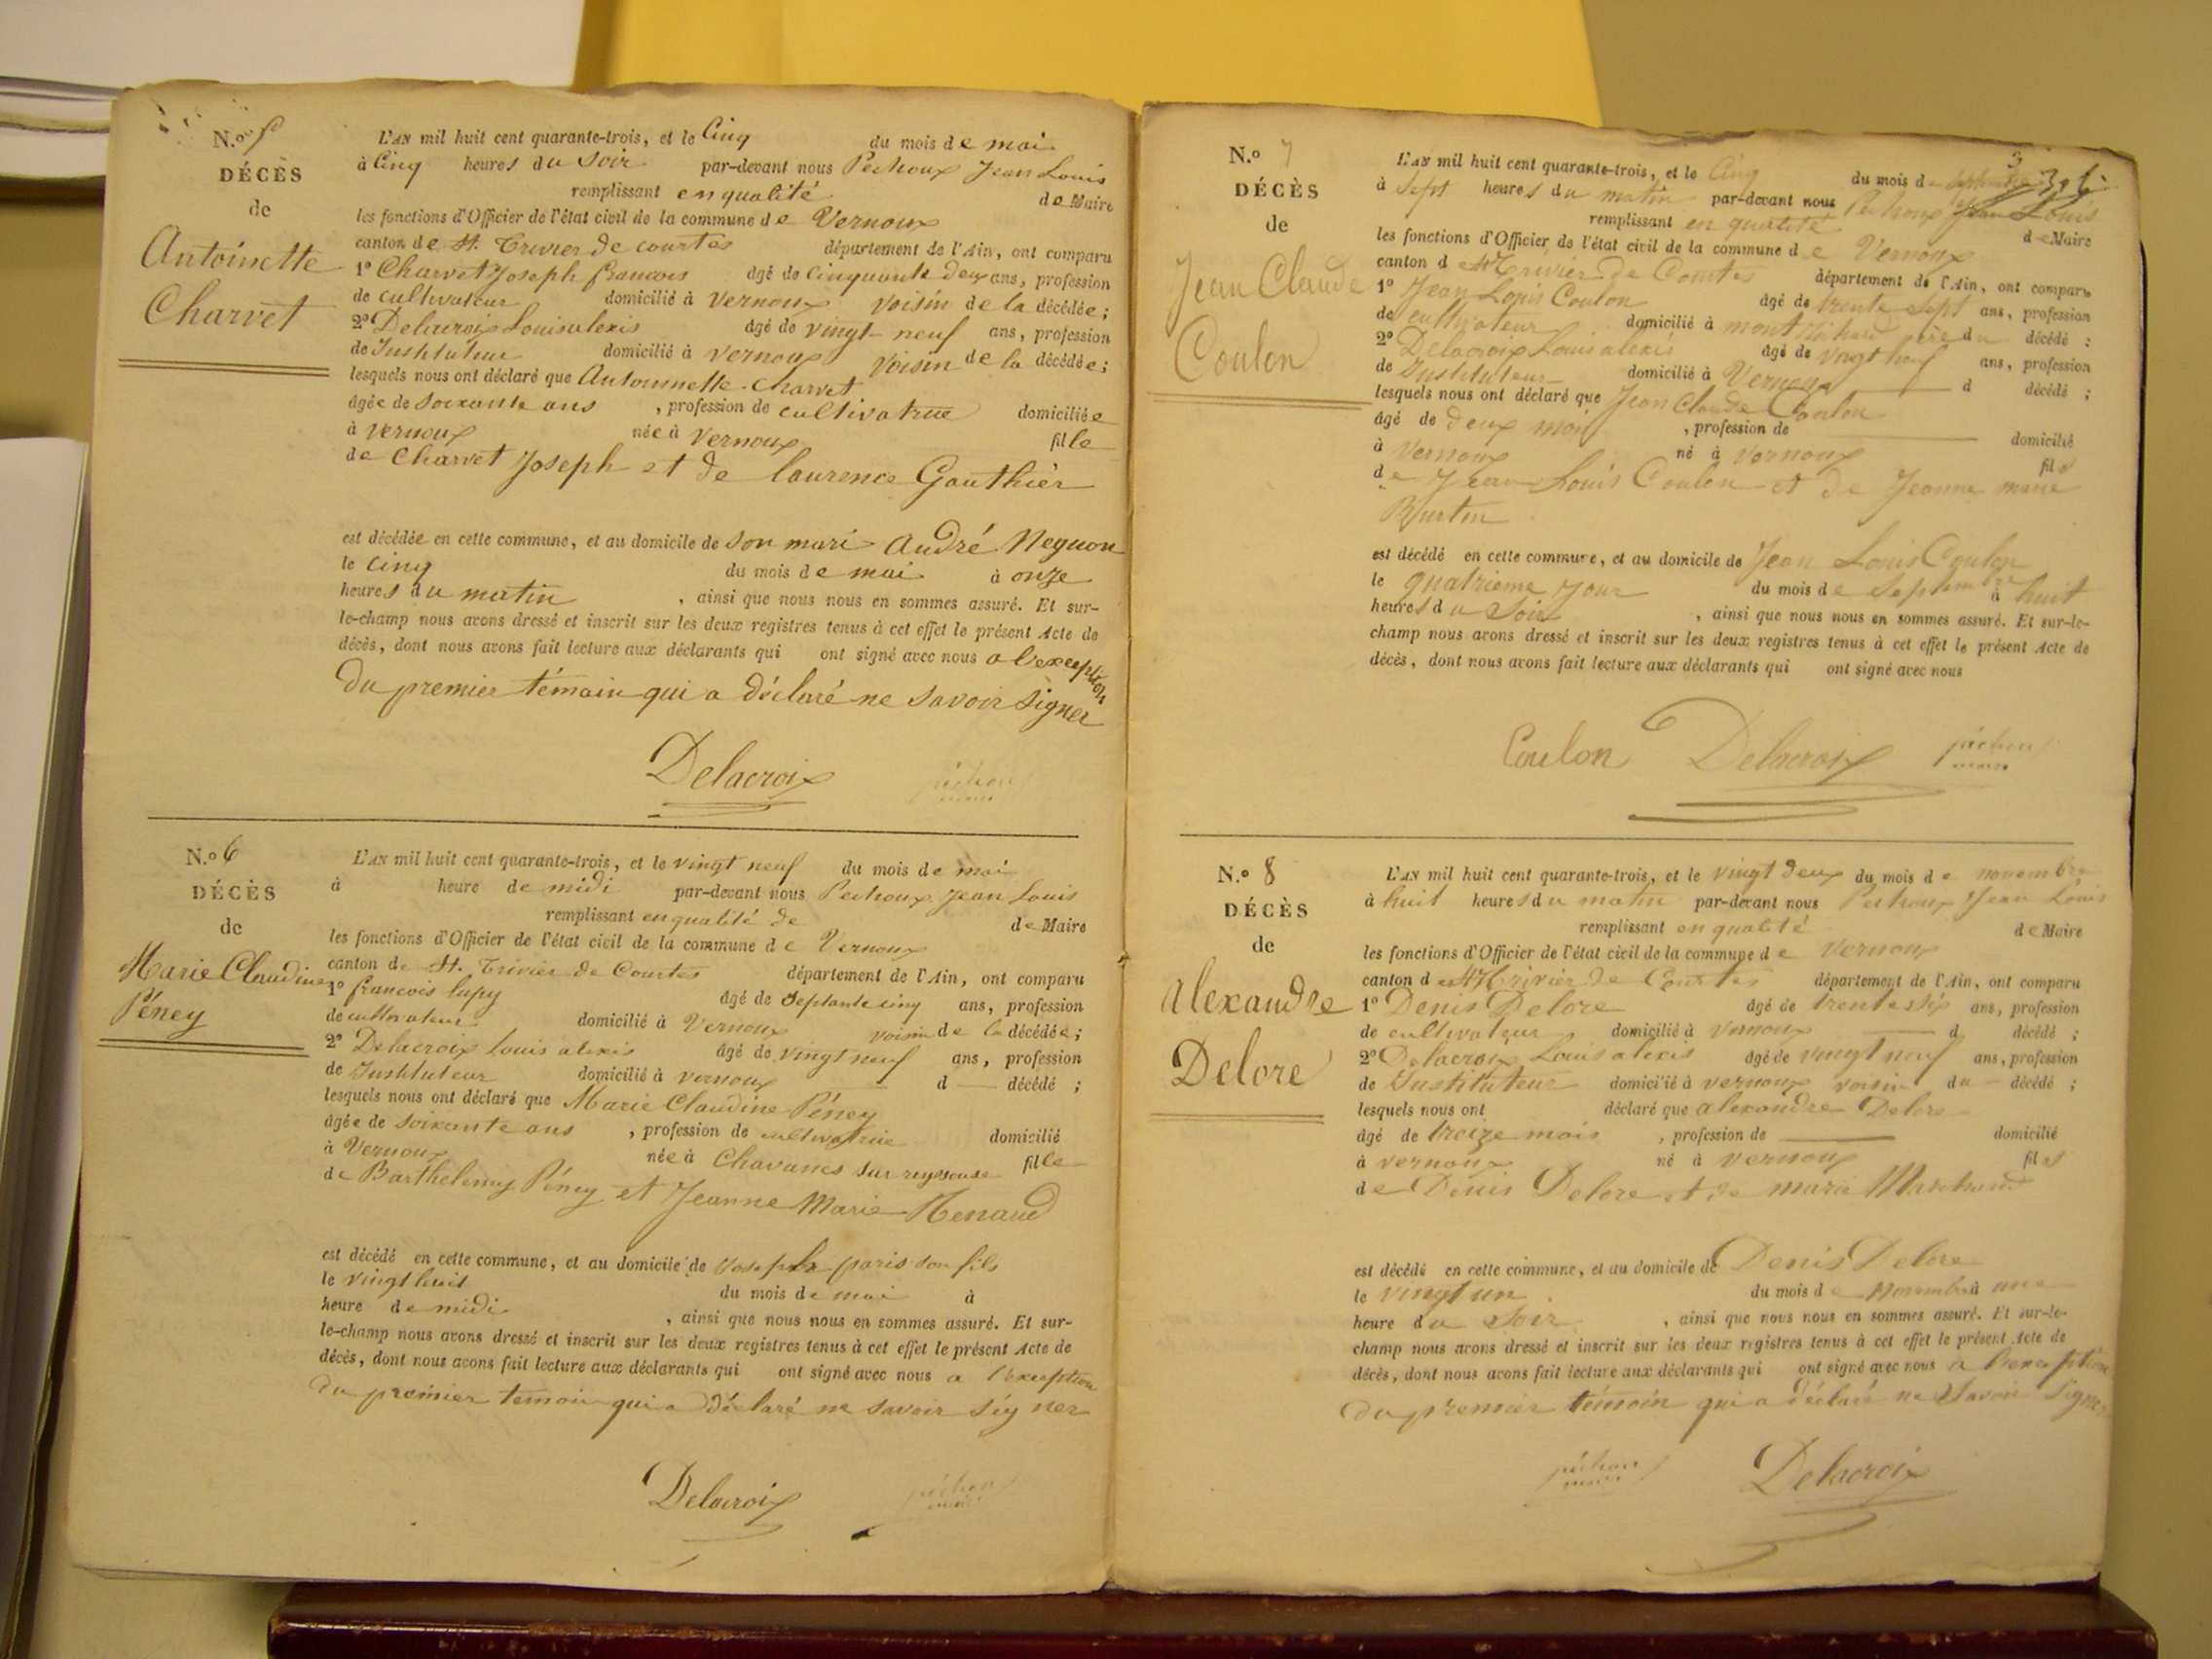 N.º 5
DÉCÈS
de
Antoinette
Charvet
L'AN mil huit cent quarante-trois, et le Cinq du mois de mai
à Cinq heures du Soir par-devant nous Pechoux Jean Louis
remplissant en qualité de Maire
les fonctions d'Officier de l'état civil de la commune de Vernoux
canton de St. Trivier de courtes département de l'Ain, ont comparu
1º Charvet Joseph francois âgé de Cinquante deux ans, profession
de cultivateur domicilié à Vernoux voisin de la décédée ;
2º Delacroix Louis alexis âgé de vingt-neuf ans, profession
de Instituteur domicilié à Vernoux voisin de la décédée ;
lesquels nous ont déclaré que Antoinnette Charvet
âgée de soixante ans , profession de cultivatrice domiciliée
à vernoux née à Vernoux fille
de Charvet Joseph et de laurence Gauthier
est décédée en cette commune, et au domicile de son mari André
le Cinq du mois de mai à onze
heures du matin , ainsi que nous nous en sommes assuré. Et sur-
le-champ nous avons dressé et inscrit sur les deux registres tenus à cet effet le présent Acte de
décès, dont nous avons fait lecture aux déclarants qui ont signé avec nous a l'exception
du premier témoin qui a déclaré ne savoir signer
Delacroix pechoux
maire
N.º 6
DÉCÈS
de
Marie Claudine
Péney
L'AN mil huit cent quarante-trois, et le vingt neuf du mois de mai
à heure de midi par-devant nous Pechoux Jean Louis
remplissant en qualité de de Maire
les fonctions d'Officier de l'état civil de la commune de Vernoux
canton de St. Trivier de Courtes département de l'Ain, ont comparu
1º francois lupy âgé de septante cinq ans, profession
de cultivateur domicilié à Vernoux voisin de la décédée ;
2º Delacroix Louis alexis âgé de vingt neuf ans, profession
de Instituteur domicilié à vernoux d décédé ;
lesquels nous ont déclaré que Marie Claudine Péney
âgée de soixante ans , profession de cultivatrice domicilié
à Vernoux née à Chavanes sur reyssouse fille
de Barthelemy Péney et Jeanne Marie Renaud
est décédé en cette commune, et au domicile de Joseph paris son fils
le vingt huit du mois de mai à
heure de midi , ainsi que nous nous en sommes assuré. Et sur-
le-champ nous avons dressé et inscrit sur les deux registres tenus à cet effet le présent Acte de
décès, dont nous avons fait lecture aux déclarants qui ont signé avec nous a l'exception
du premier temoin qui a déclaré ne savoir signer
Delacroix pechoux
maire
N.º 7
DÉCÈS
de
Jean Claude
Coulon
3
L'AN mil huit cent quarante-trois, et le Cinq du mois de septembre
à Sept heures du matin par-devant nous Pechoux Jean Louis
remplissant en qualité de Maire
les fonctions d'Officier de l'état civil de la commune de Vernoux
canton de St Trivier de Courtes département de l'Ain, ont comparu
1º Jean Louis Coulon âgé de trente sept ans, profession
de cultivateur domicilié à père du décédé ;
2º Delacroix Louis alexis âgé de vingt neuf ans, profession
de Instituteur domicilié à Vernoux d décédé ;
lesquels nous ont déclaré que Jean Claude Coulon
âgé de deux mois , profession de domicilié
à Vernoux né à Vernoux fils
de Jean Louis Coulon et de Jeanne marie
est décédé en cette commune, et au domicile de Jean Louis Coulon
le quatrieme jour du mois de Septembre à huit
heures du Soir , ainsi que nous nous en sommes assuré. Et sur-le-
champ nous avons dressé et inscrit sur les deux registres tenus à cet effet le présent Acte de
décès, dont nous avons fait lecture aux déclarants qui ont signé avec nous
Coulon Delacroix pechoux
maire
N.º 8
DÉCÈS
de
alexandre
Delore
L'AN mil huit cent quarante-trois, et le vingt deux du mois de novembre
à huit heures du matin par-devant nous Pechoux Jean Louis
remplissant en qualité de Maire
les fonctions d'Officier de l'état civil de la commune de Vernoux
canton de St Trivier de Courtes département de l'Ain, ont comparu
1º Denis Delore âgé de trente six ans, profession
de cultivateur domicilié à vernoux d décédé ;
2º Delacroix Louis alexis âgé de vingt neuf ans, profession
de Instituteur domicilié à vernoux voisin du décédé ;
lesquels nous ont déclaré que alexandre Delore
âgé de treize mois , profession de domicilié
à vernoux né à vernoux fils
de Denis Delore et de marie Marchand
est décédé en cette commune, et au domicile de Denis Delore
le vingt un du mois de Novembre à une
heure du Soir , ainsi que nous nous en sommes assuré. Et sur-le-
champ nous avons dressé et inscrit sur les deux registres tenus à cet effet le présent Acte de
décès, dont nous avons fait lecture aux déclarants qui ont signé avec nous a l'exception
du premier témoin qui a déclaré ne savoir signer
pechoux Delacroix
maire